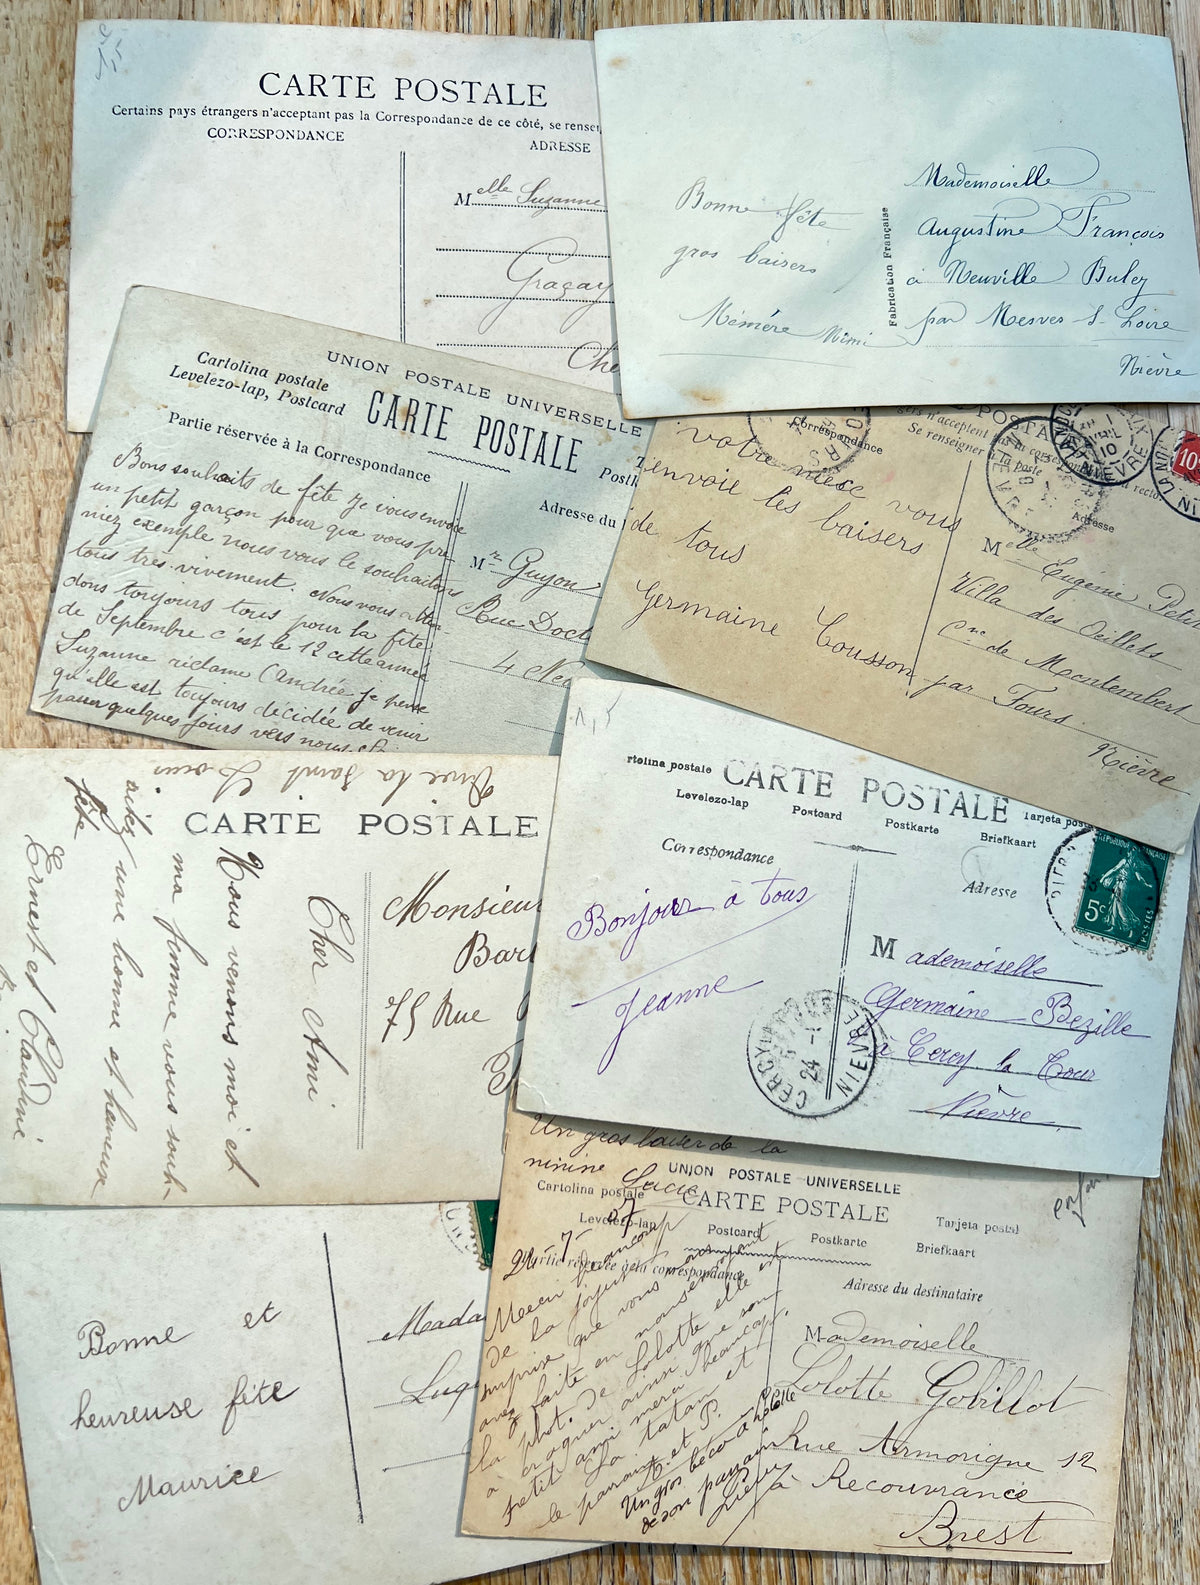 CARTE POSTALE
Certains pays étrangers n'acceptant pas la Correspondance de ce côté, se rensei
CORRESPONDANCE
ADRESSE
Melle Suzanne
Graçay
Che
Bonne fête
gros baisers
Mémére Mimi
Fabrication Française
Mademoiselle
Augustine François
à Neuville Buley
par Mesves s- Loire
Nièvre
UNION POSTALE UNIVERSELLE
Cartolina postale
Levelezo-lap, Postcard
CARTE POSTALE
Postk
Partie réservée à la Correspondance
Adresse du
Bons souhaits de fête je vous envoie
un petit garçon pour que vous pre
niez exemple nous vous le souhaitons
tous très vivement. Nous vous atten-
dons toujours tous pour la fête
de Septembre c'est le 12 cette année
Suzanne réclame Andrée je pense
qu'elle est toujours décidée de venir
passer quelques jours vers nous.
Mr Guyon
Rue Doct
4 Ne
POSTA
gers n'acceptent pas
Se renseigner à la poste
recto
Correspondance
Adresse
votre nièce vous
envoie les baisers
de tous
Germaine Cousson
10
NIÈVRE
10
Melle Eugénie Petit
Villa des Oeillets
Cne de Montembert
par Tours
Nièvre
Vive la saint Louis
CARTE POSTALE
Cher Ami
Nous venons moi et
ma femme vous souh-
aitez une bonne et heureuse
fête
Ernest et Claudine
Monsieur
Bar
75 Rue
1,5
rtolina postale
CARTE POSTALE
Levelezo-lap
Postcard
Postkarte
Briefkaart
Tarjeta post
Correspondance
Adresse
Bonjour à tous
Jeanne
REPUBLIQUE FRANÇAISE
5c
POSTES
CERCY
24
NIEVRE
Mademoiselle
Germaine Bezille
à Cercy la Tour
Nièvre
Bonne et
heureuse fête
Maurice
Mada
Luq
Un gros baiser de la
ninine Lucie
UNION POSTALE UNIVERSELLE
Cartolina postale
CARTE POSTALE
Levelezo-lap
Postcard
Postkarte
Tarjeta postal
Briefkaart
Partie réservée à la correspondance
Adresse du destinataire
-7-07
Merci beaucoup
de la joyeuse
surprise que vous
avez faite en nous
la phot. de Lolotte elle est
à croquer ainsi que son
petit ami merci beaucoup.
La tatan et
le parrain
et P.
Un gros beco à Lolotte
de son parrain
Mademoiselle
Lolotte Gobillot
Rue Armorigne 12
à Recouvrance
Brest